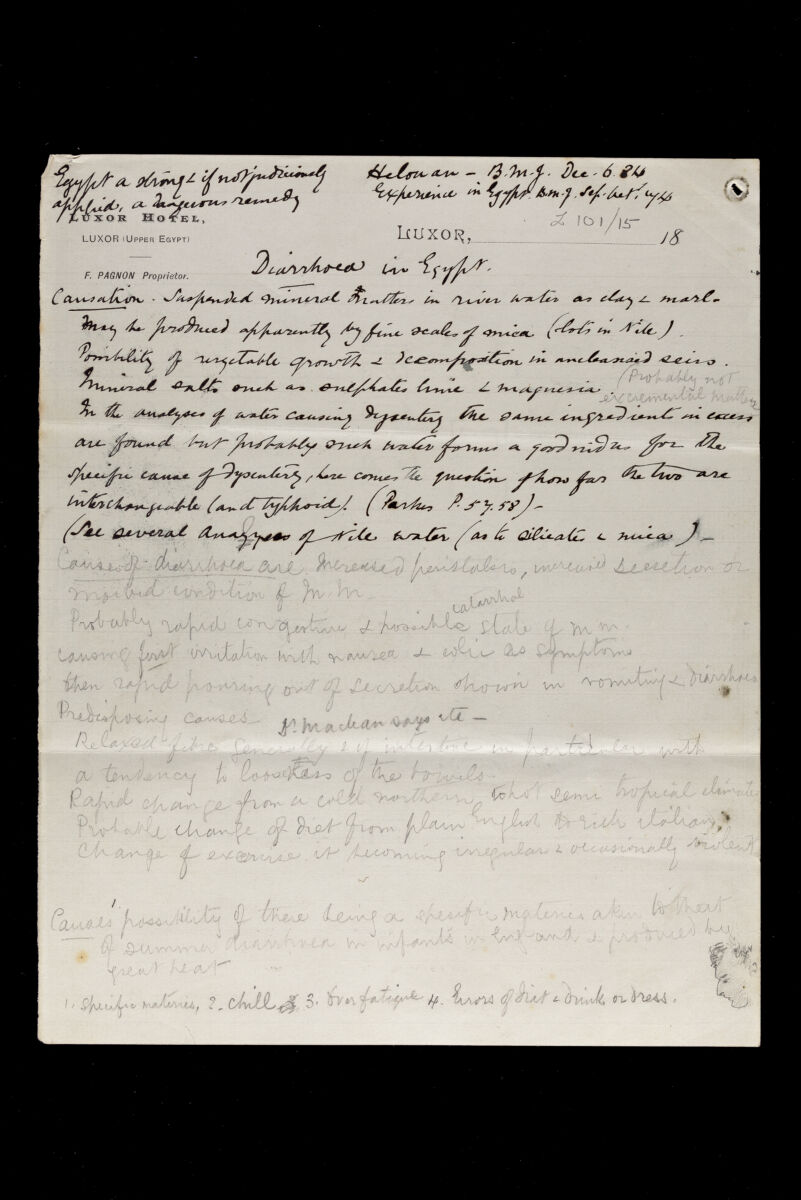 Egypt a strong & if not judiciously
applied, a dangerous remedy
Helouan - B.M.J. Dec. 6. 84
Experience in Egypt. B.M.J. Sep. Oct. 1/4
1
LUXOR HOTEL,
LUXOR (UPPER EGYPT)
F. PAGNON Proprietor.
L 101/15
LUXOR, 18
Diarrhoea in Egypt.
Causation. Suspended mineral matters in river water as clay & marl.
May be produced apparently by fine scales of mica (lots in Nile).
Possibility of vegetable growth & decomposition in uncleansed zeirs.
Mineral salts such as sulphates lime & magnesia (Probably not
excremental matters
In the analyses of water causing dysentery the same ingredients in excess
are found but probably such water forms a good nidus for the
specific cause of dysentery, here comes the question of how far the two are
interchangeable (and typhoid)! (Parkes P. 57. 58) -
(See several analyses of Nile water (as to silicates & mica) -
Causes of diarrhoea are Increased peristalsis, increased secretion or
morbid condition of M.M.
Probably rapid congestion & possible catarrhal state of m m.
causing first irritation with nausea & colic as symptoms
then rapid pouring out of secretion shown in vomiting & diarrhoea
Predisposing causes Dr. Maclean says etc -
Relaxed fibre generally & of intestine in particular with
a tendency to looseness of the bowels.
Rapid change from a cold northern to hot semi tropical climate
Probable change of diet from plain English to rich italian,
Change of exercise it becoming irregular & occasionally violent
Causes possibility of there being a specific materies akin to that
of summer diarrhoea in infants in England & produced by
great heat
1. Specific materies, 2. Chill, 3. Over fatigue 4. Errors of diet & drink or dress.